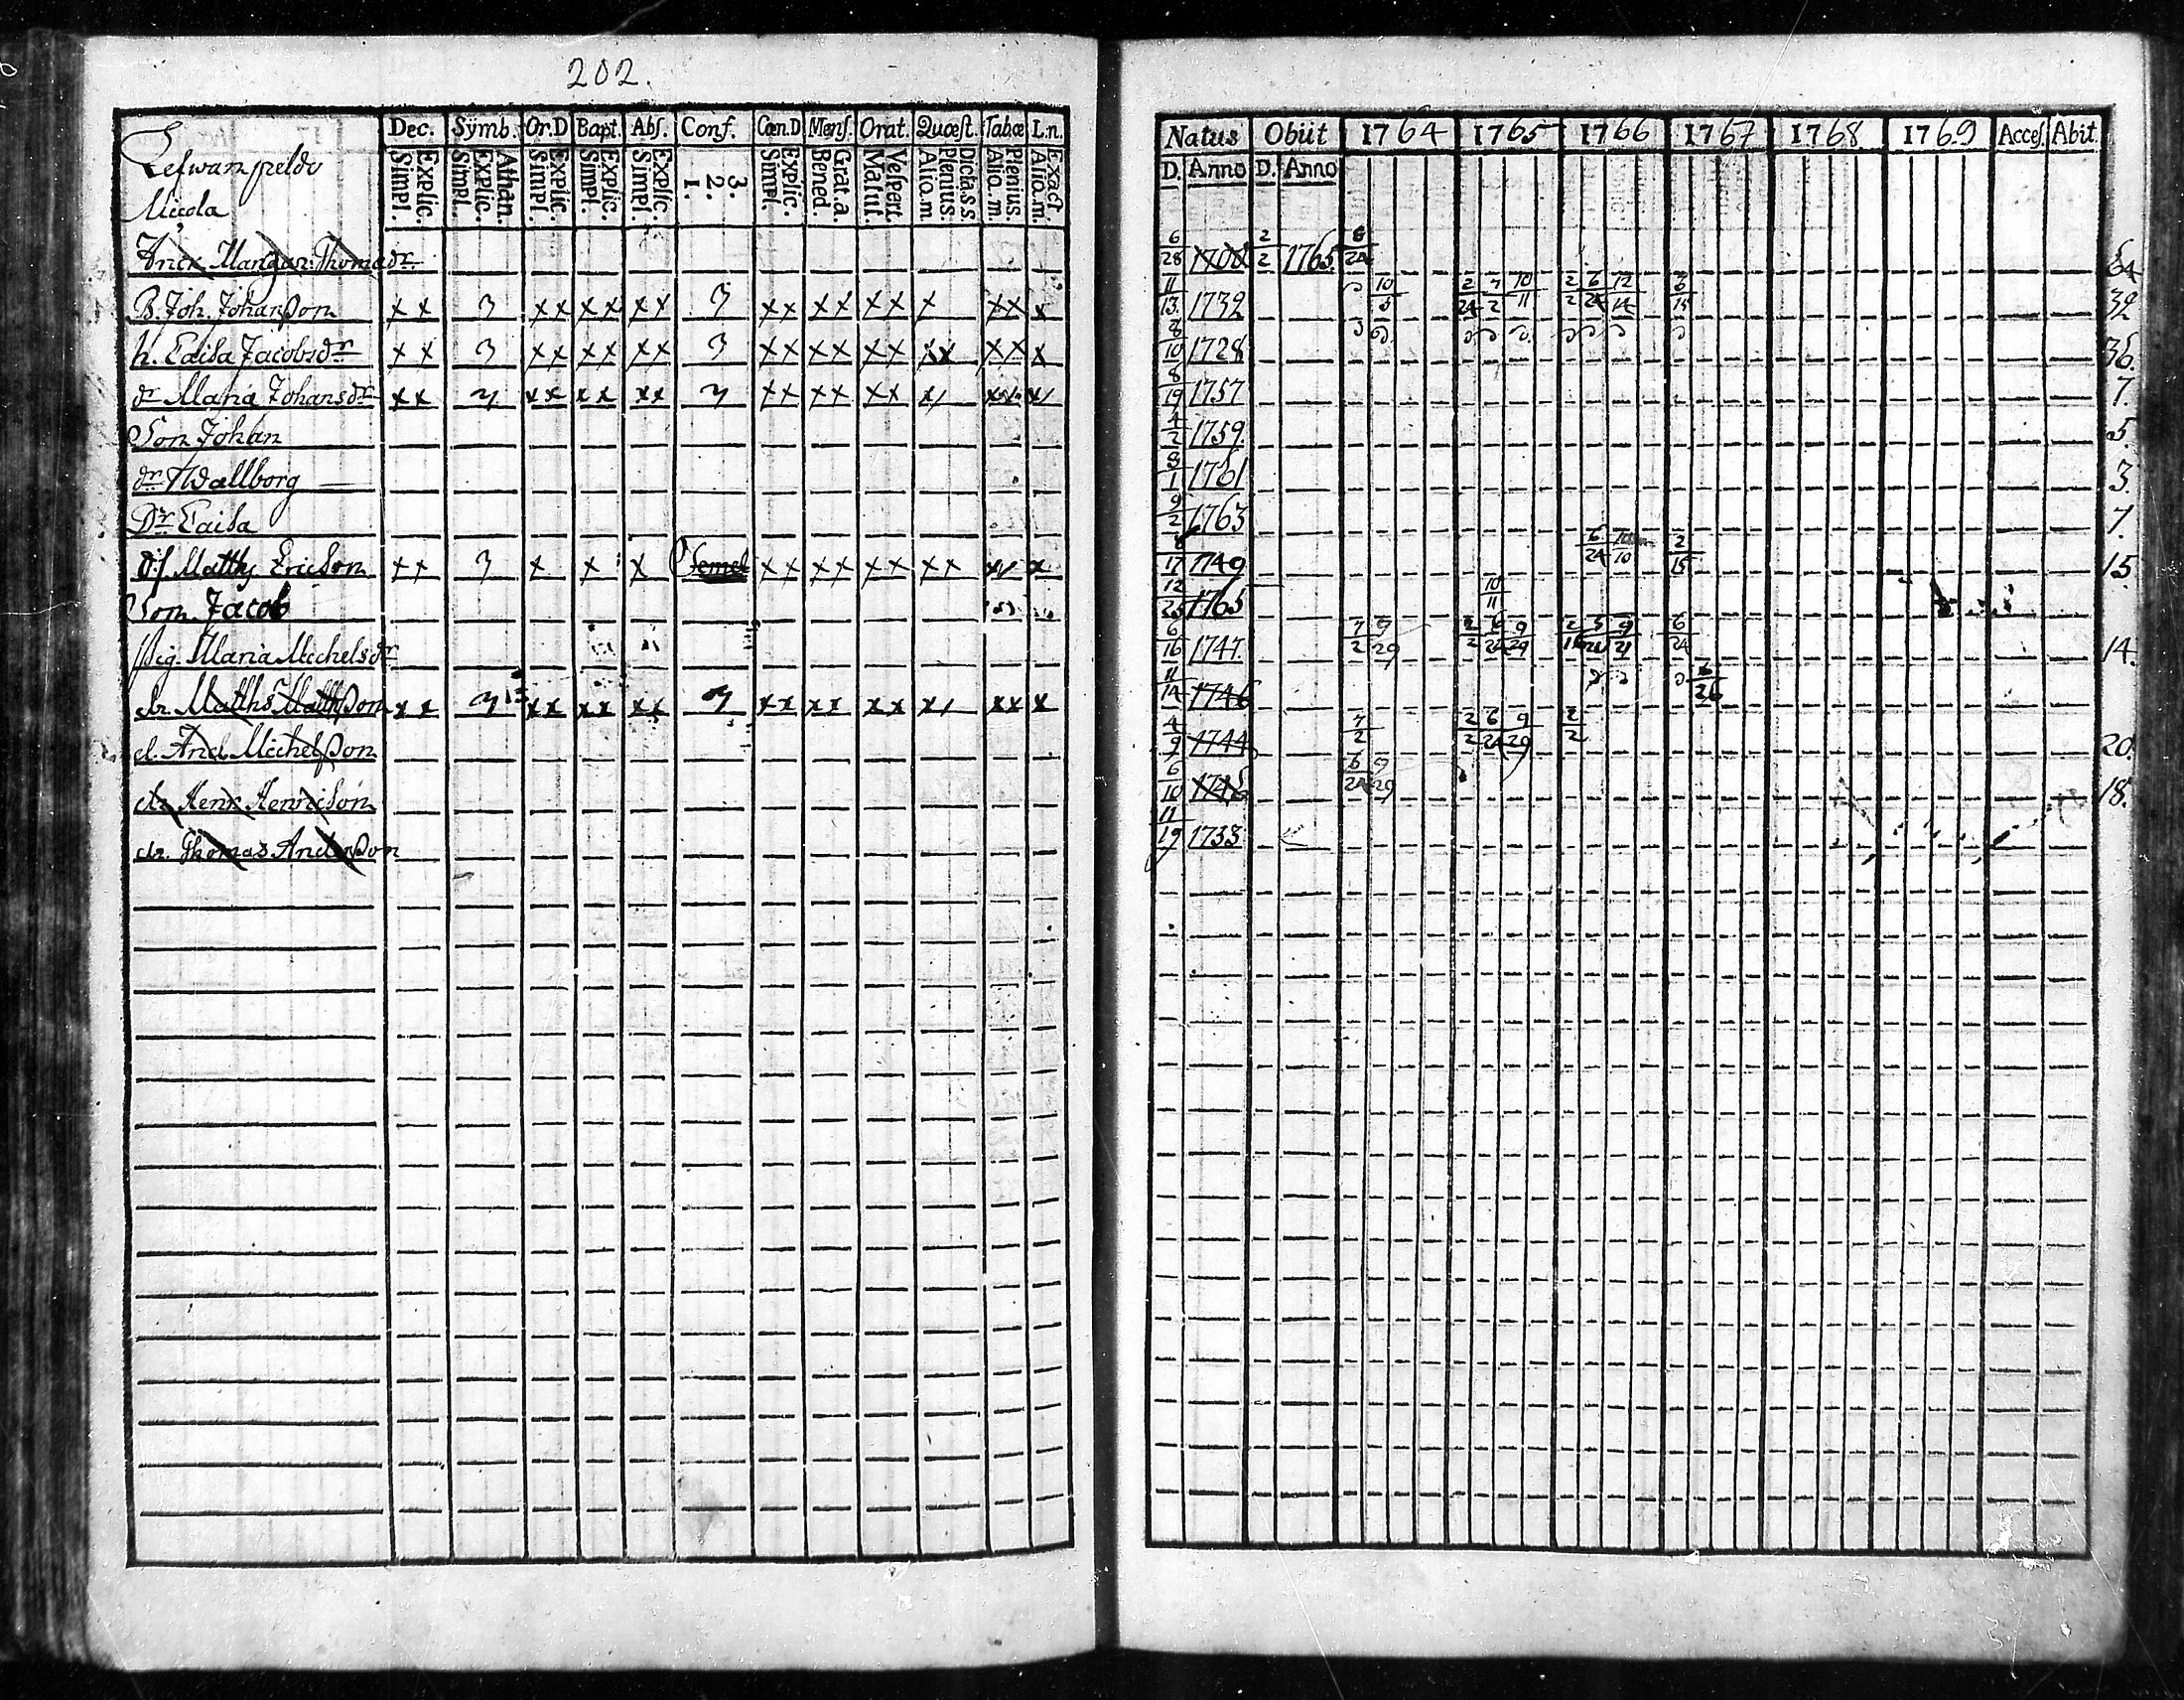 202.
Dec. Symb. Or.D Bapt. Abs. Conf. Cœn.D Mens. Orat. Quæst. Tabœ I.n.
Explic. Simpl. Athan. Explic. Simpl. Explic. Simpl. Explic. Simpl. Explic. Simpl. 3. 2. 1. Explic. Simpl. Grat.a. Bened. Vespert. Matut. Dicta.s.s. Plenius. Alio.m. Plenius. Alio.m. Exact. Alio.m.
Micola
B. Joh. Johansson xx 3 xx xx xx 3 xx xx xx x xx x
h. Caisa Jacobsdr xx 3 xx xx xx 3 xx xx xx xx xx x
dr Maria Johansdr xx 3 xx xx xx 3 xx xx xx x/ xx x/
Son Johan
dr Wallborg
Dr Caisa
Matths Ericson xx 3 x x x Semel xx xx xx xx x/ x
Son Jacob
Pig. Maria Michelsdr
dr. Matths Mattsson xx 3 xx xx xx 3 xx xx xx x/ xx x
d. And Michelsson
dr Henr Henricson
dr. Thomas Andersson
Natus Obiit 1764 1765 1766 1767 1768 1769 Acces. Abit.
D. Anno D. Anno
6/28 1708 2/2 1765 6/24 64
11/13 1732 10/5 2/24 7/2 10/11 2/2 6/24 12/14 6/15 32
8/10 1728 36.
8/19 1757 7.
4/2 1759. 5.
8/1 1761 3.
9/2 1763 7.
17 1749 6/24 10/10 2/15 15
12/25 1765 10/11
6/16 1747. 7/2 9/29 2/2 6/24 9/29 2/16 5/24 9/21 6/24 14.
11/14 1746 6/26
4/9 1744 7/2 2/2 6/24 9/29 2/2 20.
6/10 1746 6/24 9/29 18.
11/19 1753